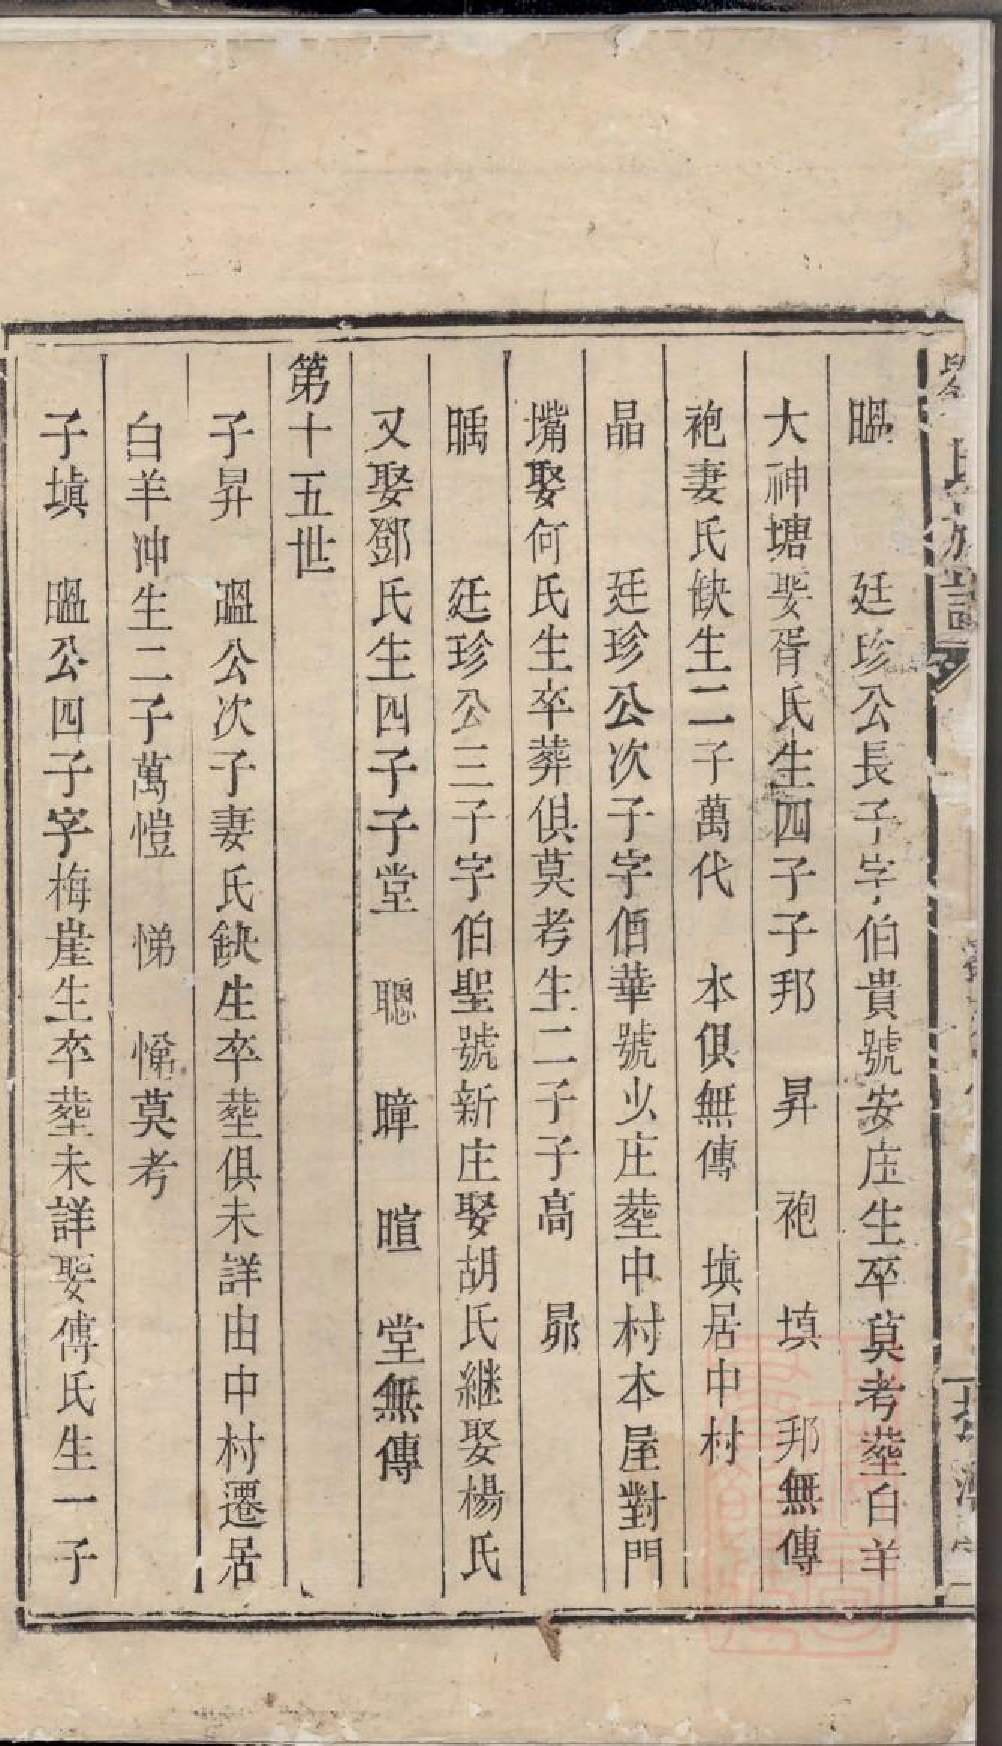 㬈 廷珍公長子字伯貴號安庄生卒莫考塟白羊
大神塘娶胥氏生四子子邦 昇 袍 填 邦無傳
袍妻氏缺生二子萬代 本俱無傳 填居中村
晶 廷珍公次子字伯華號少庄塟中村本屋對門
嘴娶何氏生卒葬俱莫考生二子子高 昴
廷珍公三子字伯聖號新庄娶胡氏継娶楊氏
又娶鄧氏生四子子堂 聰 暲 暄 堂無傳
第十五世
子昇 㬈公次子妻氏缺生卒塟俱未詳由中村遷居
白羊冲生二子萬愷 悌 莫考
子填 㬈公四子字梅崖生卒塟未詳娶傅氏生一子